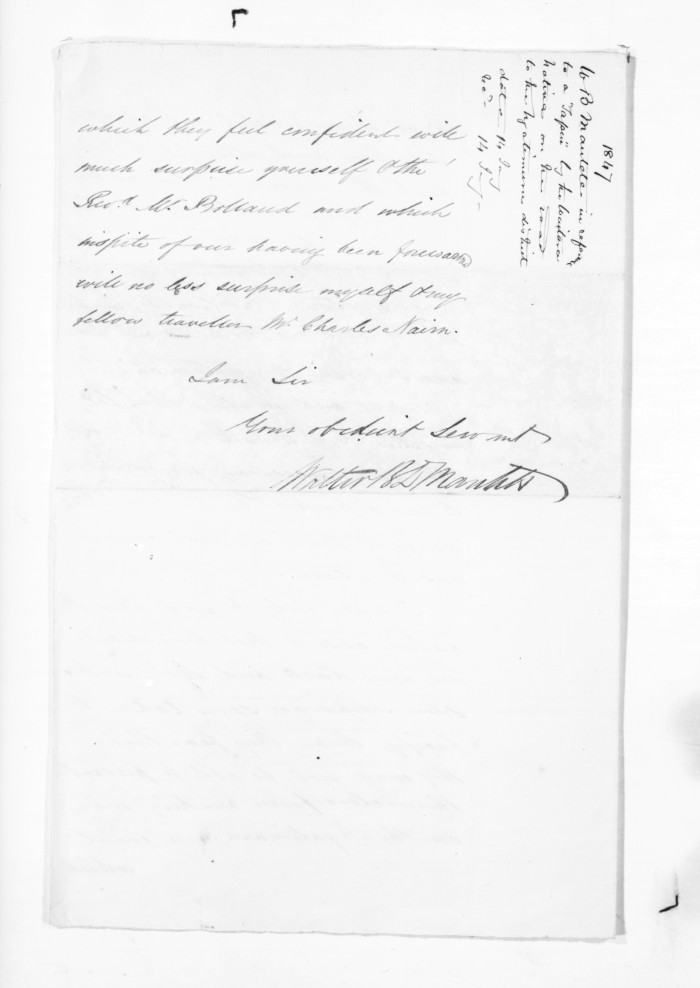 which they feel confident will
much surprise yourself & the
Revd. Mr. Bolland and which
inspite of our having been forewarned
will no less surprise myself & my
fellow traveller Mr Charles Nairn.
I am Sir
Your obedient Servant
Walter B D Mantell
1847
W B Mantell in refce
to a "Tapu" by the
native on the road
to the district
date 14 Jany
Recd 14 Jany